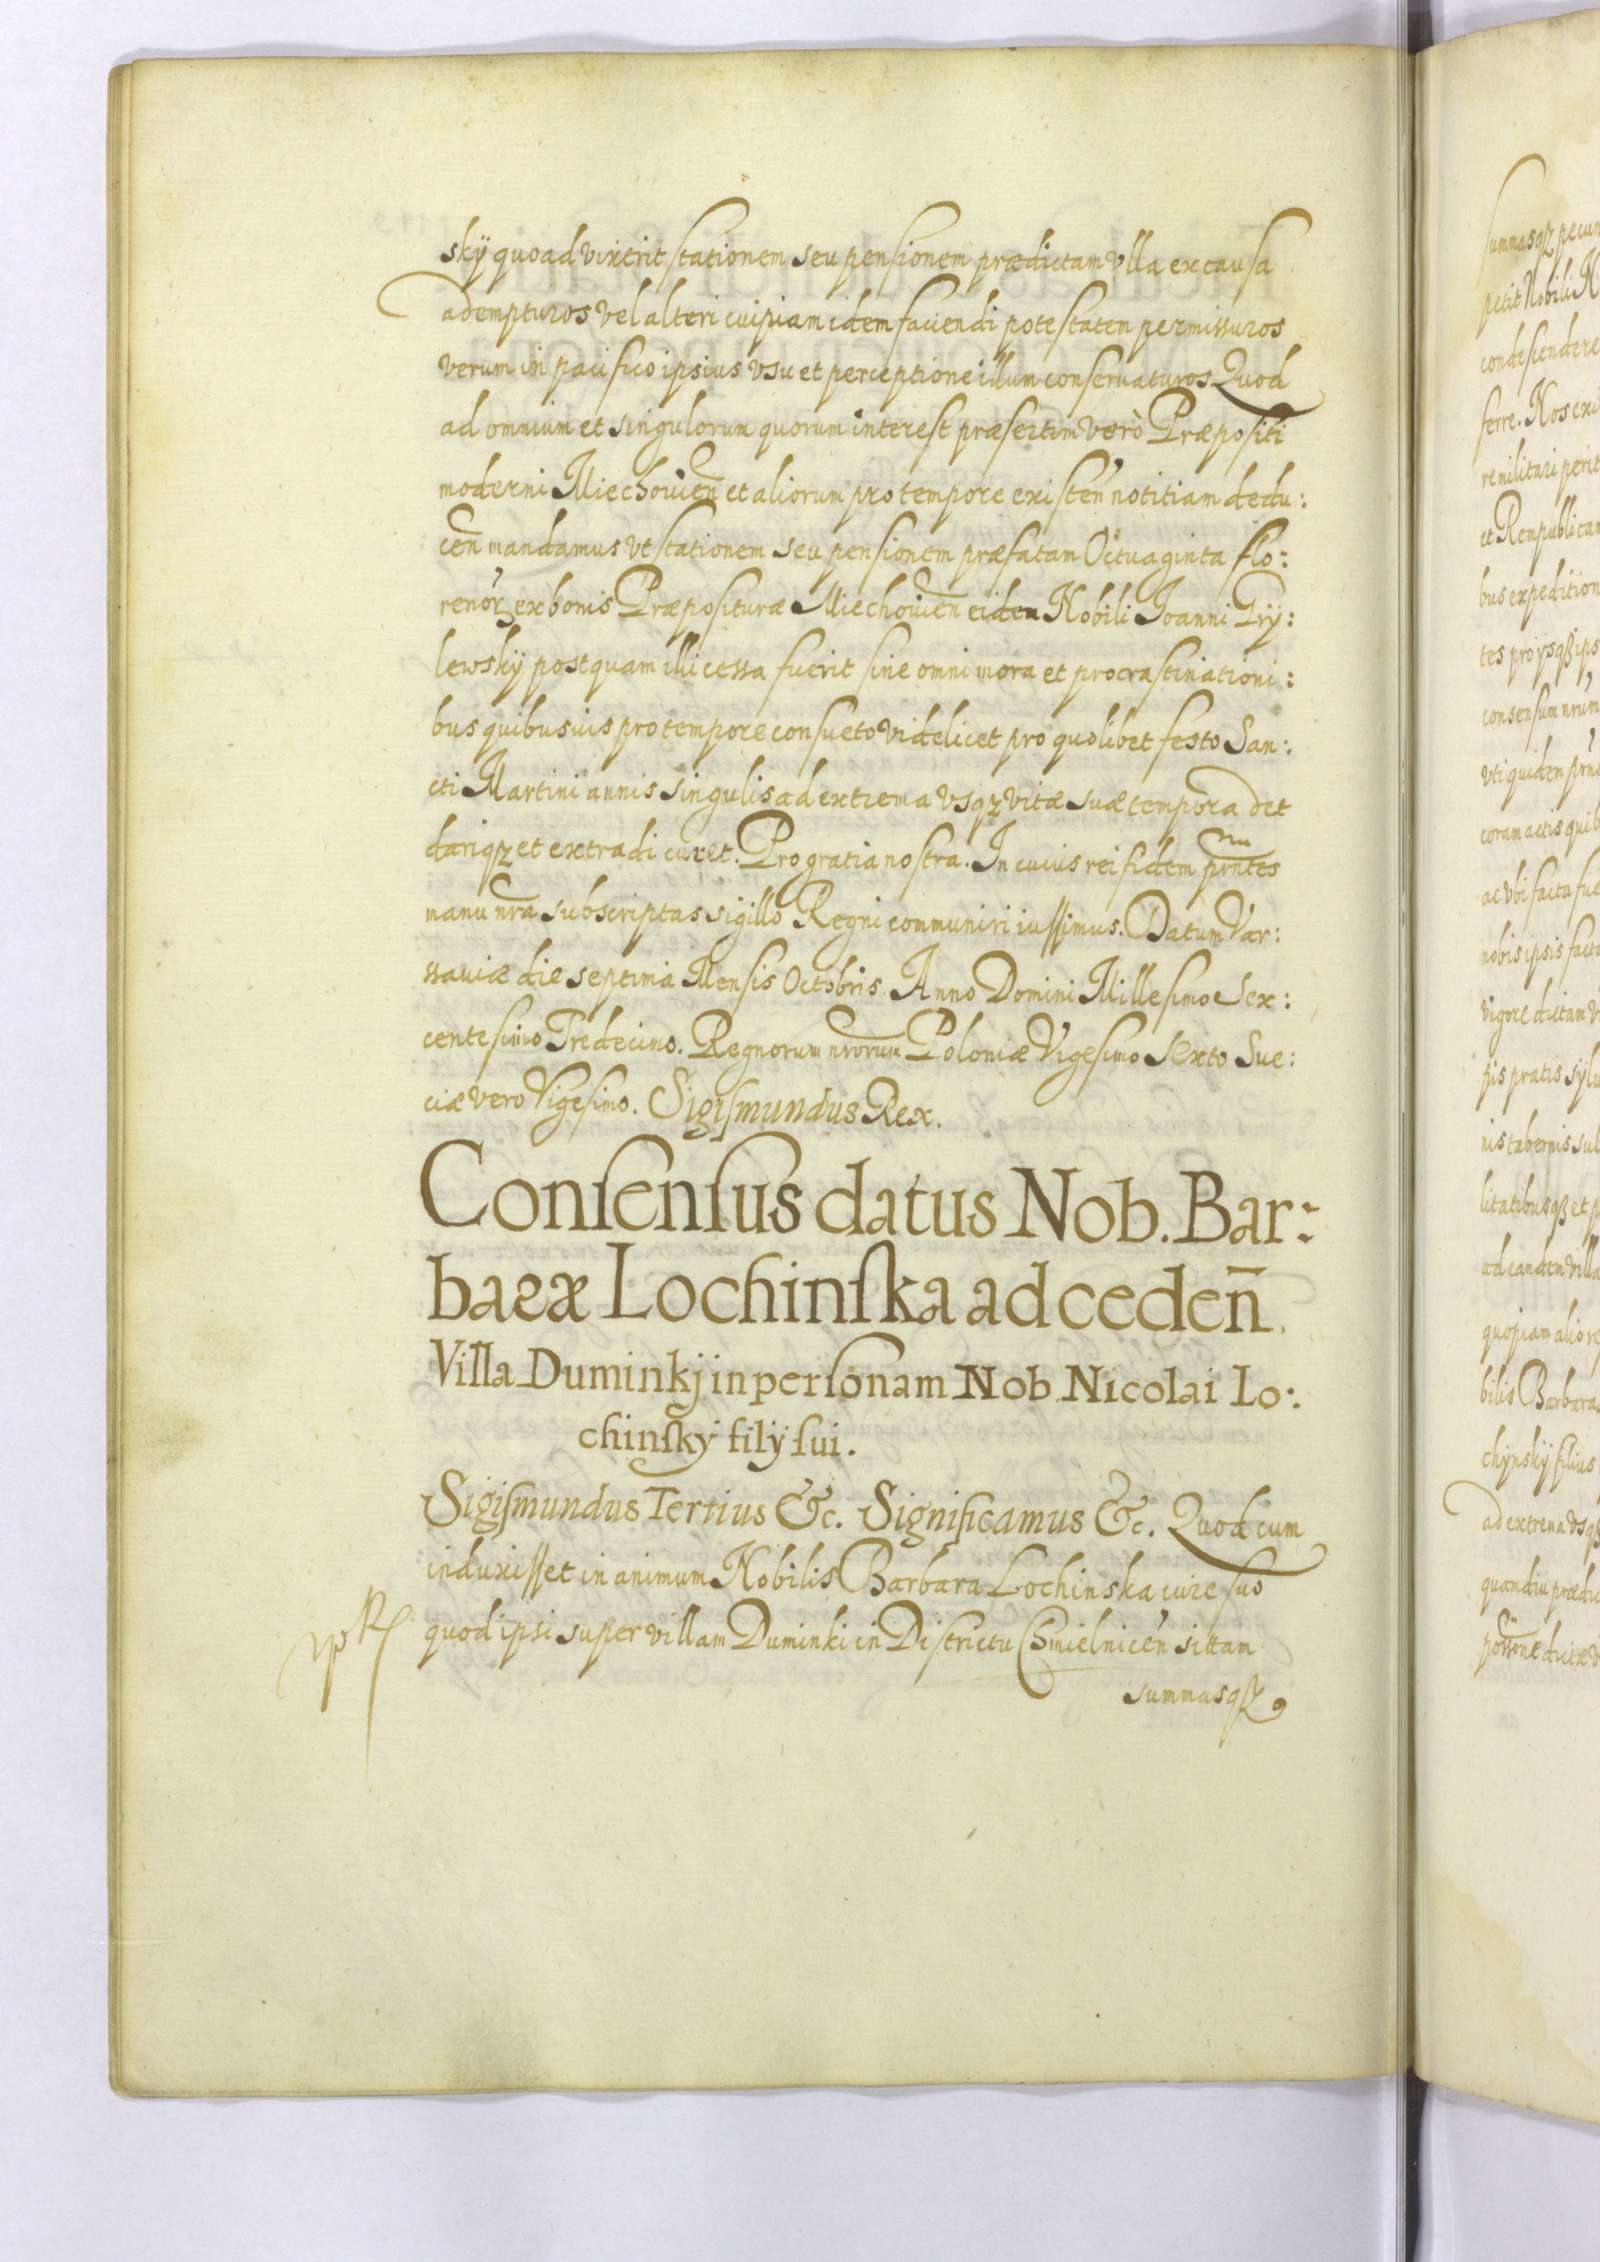 skÿ quoad vixerit stationem seu pensionem prædictam vlla ex causa
adempturos vel alteri cuipiam idem faciendi potestatem permissuros
verum in pacifico ipsius vsu et perceptione illum conseruaturos Quod
ad omnium et singulorum quorum interest præsertim verò Præpositi
moderni Miechouien̄ et aliorum pro tempore existen̄ notitiam dedu:
cen̄ mandamus vt stationem seu pensionem præfatam Octuaginta flo:
renoꝝ ex bonis Præposituræ Miechouien̄ eidem Nobili Joanni
lewskÿ postquam illi cessa fuerit sine omni mora et procrastinationi:
bus quibusuis pro tempore consueto videlicet pro quolibet festo San:
cti Martini annis singulis ad extrema vsqꝫ vitæ suæ tempora det
dariqꝫ et extradi curet. Pro gratia nostra. In cuius rei fidem prn̄tes
manu nr̄a subscriptas sigillo Regni communiri iussimus. Datum Var:
sauiæ die septima Mensis Octobris. Anno Domini Millesimo Sex:
centesimo Tredecimo. Regnorum nr̄orum Poloniæ Vigesimo Sexto Sue:
ciæ vero Vigesimo. Sigismundus Rex.
Consensus datus Nob. Bar:
baræ Lochinska ad ceden̄.
Villa Duminkj in personam Nob. Nicolai Lo:
chinskÿ filÿ sui.
Sigismundus Tertius &c. Significamus &c. Quod cum
induxisset in animum Nobilis Barbara Lochinska iure suo
quod ipsi super villam Duminki in Districtu Chmielnicen̄ sittam
summasqꝫ
summasqꝫ pecun
petit Nobili N
condescendere
ferre. Nos exi
re militari perit
et Rempublicam
bus expedition
tes pro ÿsqꝫ ips
consensum nr̄um
vti quidem prn̄
coram actis quib
ac vbi facta fue
nobis ipsis facta
vigore dictam v
pis pratis sylu
nis tabernis sul
litatibusqꝫ et p
ad eandem villa
quopiam alio re
bilis Barbara
chÿnskÿ filius
ad extrema vsqꝫ
quamdiu prædic